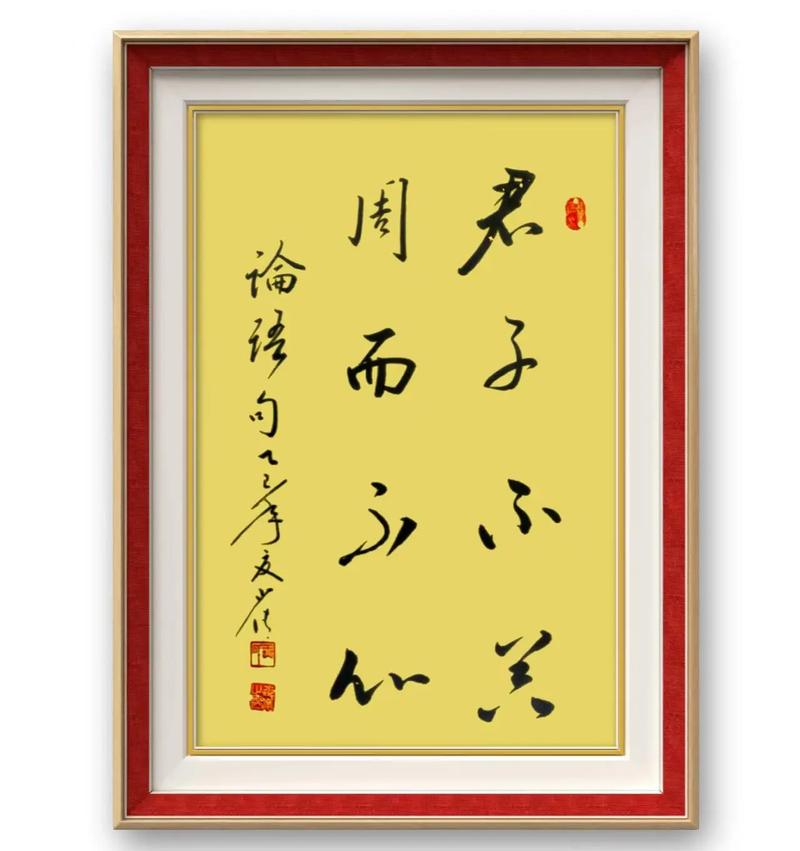 君子不器
周而不比
論語句乙巳年夏